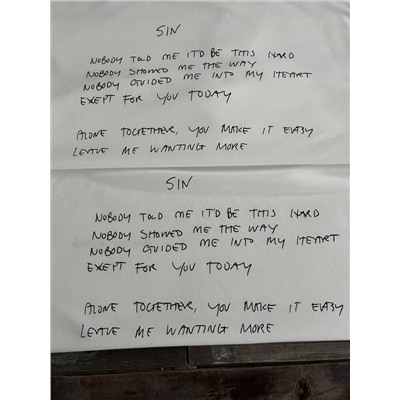 SIN
NOBODY TOLD ME IT'D BE THIS HARD
NOBODY SHOWED ME THE WAY
NOBODY GUIDED ME INTO MY HEART
EXEPT FOR YOU TODAY
ALONE TOGETHER, YOU MAKE IT EASY
LEAVE ME WANTING MORE
SIN
NOBODY TOLD ME IT'D BE THIS HARD
NOBODY SHOWED ME THE WAY
NOBODY GUIDED ME INTO MY HEART
EXEPT FOR YOU TODAY
ALONE TOGETHER, YOU MAKE IT EASY
LEAVE ME WANTING MORE